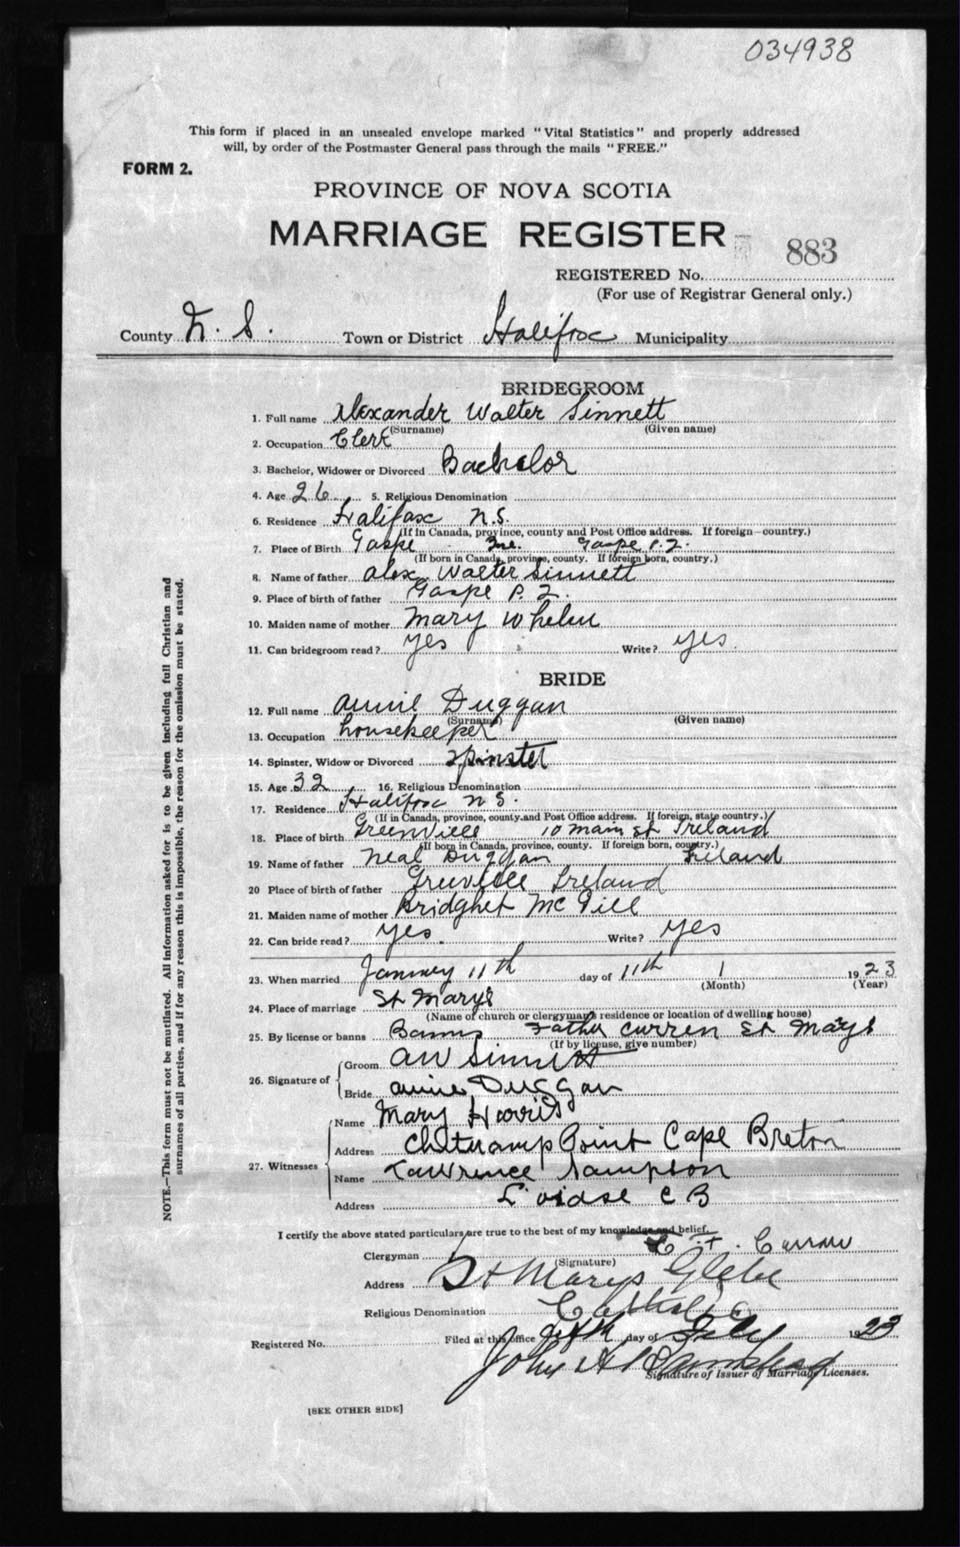 034938
This form if placed in an unsealed envelope marked "Vital Statistics" and properly addressed
will, by order of the Postmaster General pass through the mails "FREE."
FORM 2.
PROVINCE OF NOVA SCOTIA
MARRIAGE REGISTER
883
REGISTERED No.
(For use of Registrar General only.)
County N. S. Town or District Halifax Municipality
BRIDEGROOM
1. Full name Alexander Walter Sinnett
(Surname) (Given name)
2. Occupation Clerk
3. Bachelor, Widower or Divorced Bachelor
4. Age 26 5. Religious Denomination
6. Residence Halifax N.S.
(If in Canada, province, county and Post Office address. If foreign—country.)
7. Place of Birth Gaspe Gaspe P.Q.
(If born in Canada, province, county. If foreign born, country.)
8. Name of father Alex Walter Sinnett
9. Place of birth of father Gaspe P.Q.
10. Maiden name of mother Mary Whelen
11. Can bridegroom read? yes Write? yes.
BRIDE
12. Full name Annie Duggan
(Surname) (Given name)
13. Occupation housekeeper
14. Spinster, Widow or Divorced Spinster
15. Age 32 16. Religious Denomination
17. Residence Halifax N S.
(If in Canada, province, county and Post Office address. If foreign, state country.)
18. Place of birth Greenville 10 main St Ireland
(If born in Canada, province, county. If foreign born, country.)
19. Name of father Neal Duggan Ireland
20 Place of birth of father Ireland
21. Maiden name of mother Bridghet McGill
22. Can bride read? yes. Write? yes
23. When married January 11th day of 11th 1 1923
(Month) (Year)
24. Place of marriage St Mary's
(Name of church or clergyman's residence or location of dwelling house)
25. By license or banns Banns Father Curren St Mary's
(If by license, give number)
26. Signature of
Groom AW Sinnett
Bride Annie Duggan
27. Witnesses
Name Mary Harris
Address Point Cape Breton
Name Lawrence Sampson
Address C B
I certify the above stated particulars are true to the best of my knowledge and belief.
Clergyman Curran
(Signature)
Address St Marys Glebe
Religious Denomination Catholic
Registered No. Filed at this office day of 1923
John A
Signature of Issuer of Marriage Licenses.
[SEE OTHER SIDE]
NOTE.—This form must not be mutilated. All information asked for is to be given including full Christian and
surnames of all parties, and if for any reason this is impossible, the reason for the omission must be stated.